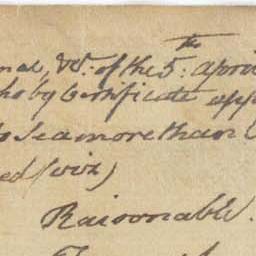 nal &c. of the 5th: April
ho by Certificate app
to Sea more than
ed (viz)
Raisonable.